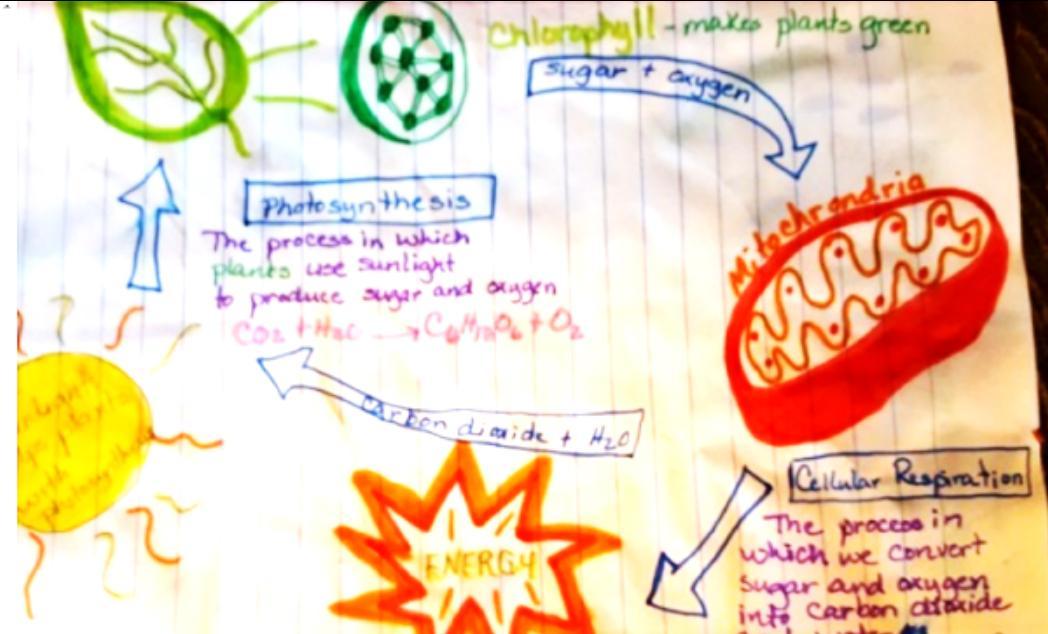 Chlorophyll - makes plants green
sugar + oxygen
Photosynthesis
The process in which
plants use sunlight
to produce sugar and oxygen
CO2 + H2O → C6H12O6 + O2
Mitochrondria
carbon dioxide + H2O
with
ENERGY
Cellular Respiration
The process in
which we convert
sugar and oxygen
into carbon dioxide